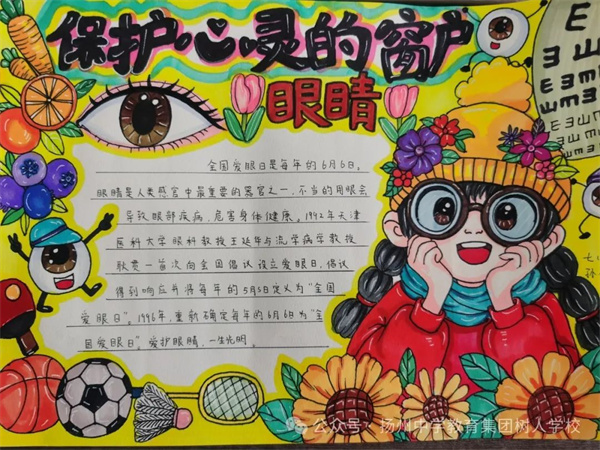 保护心灵的窗户
眼睛
全国爱眼日是每年的6月6日。
眼睛是人类感官中最重要的器官之一，不当的用眼会
导致眼部疾病，危害身体健康。1992年天津
医科大学眼科教授王延华与流行病学教授
耿贯一首次向全国倡议设立爱眼日，倡议
得到响应并将每年的5月5日定义为“全国
爱眼日”。1996年，重新确定每年的6月6日为“全
国爱眼日”。爱护眼睛，一生光明。
公众号·扬州中学教育集团树人学校